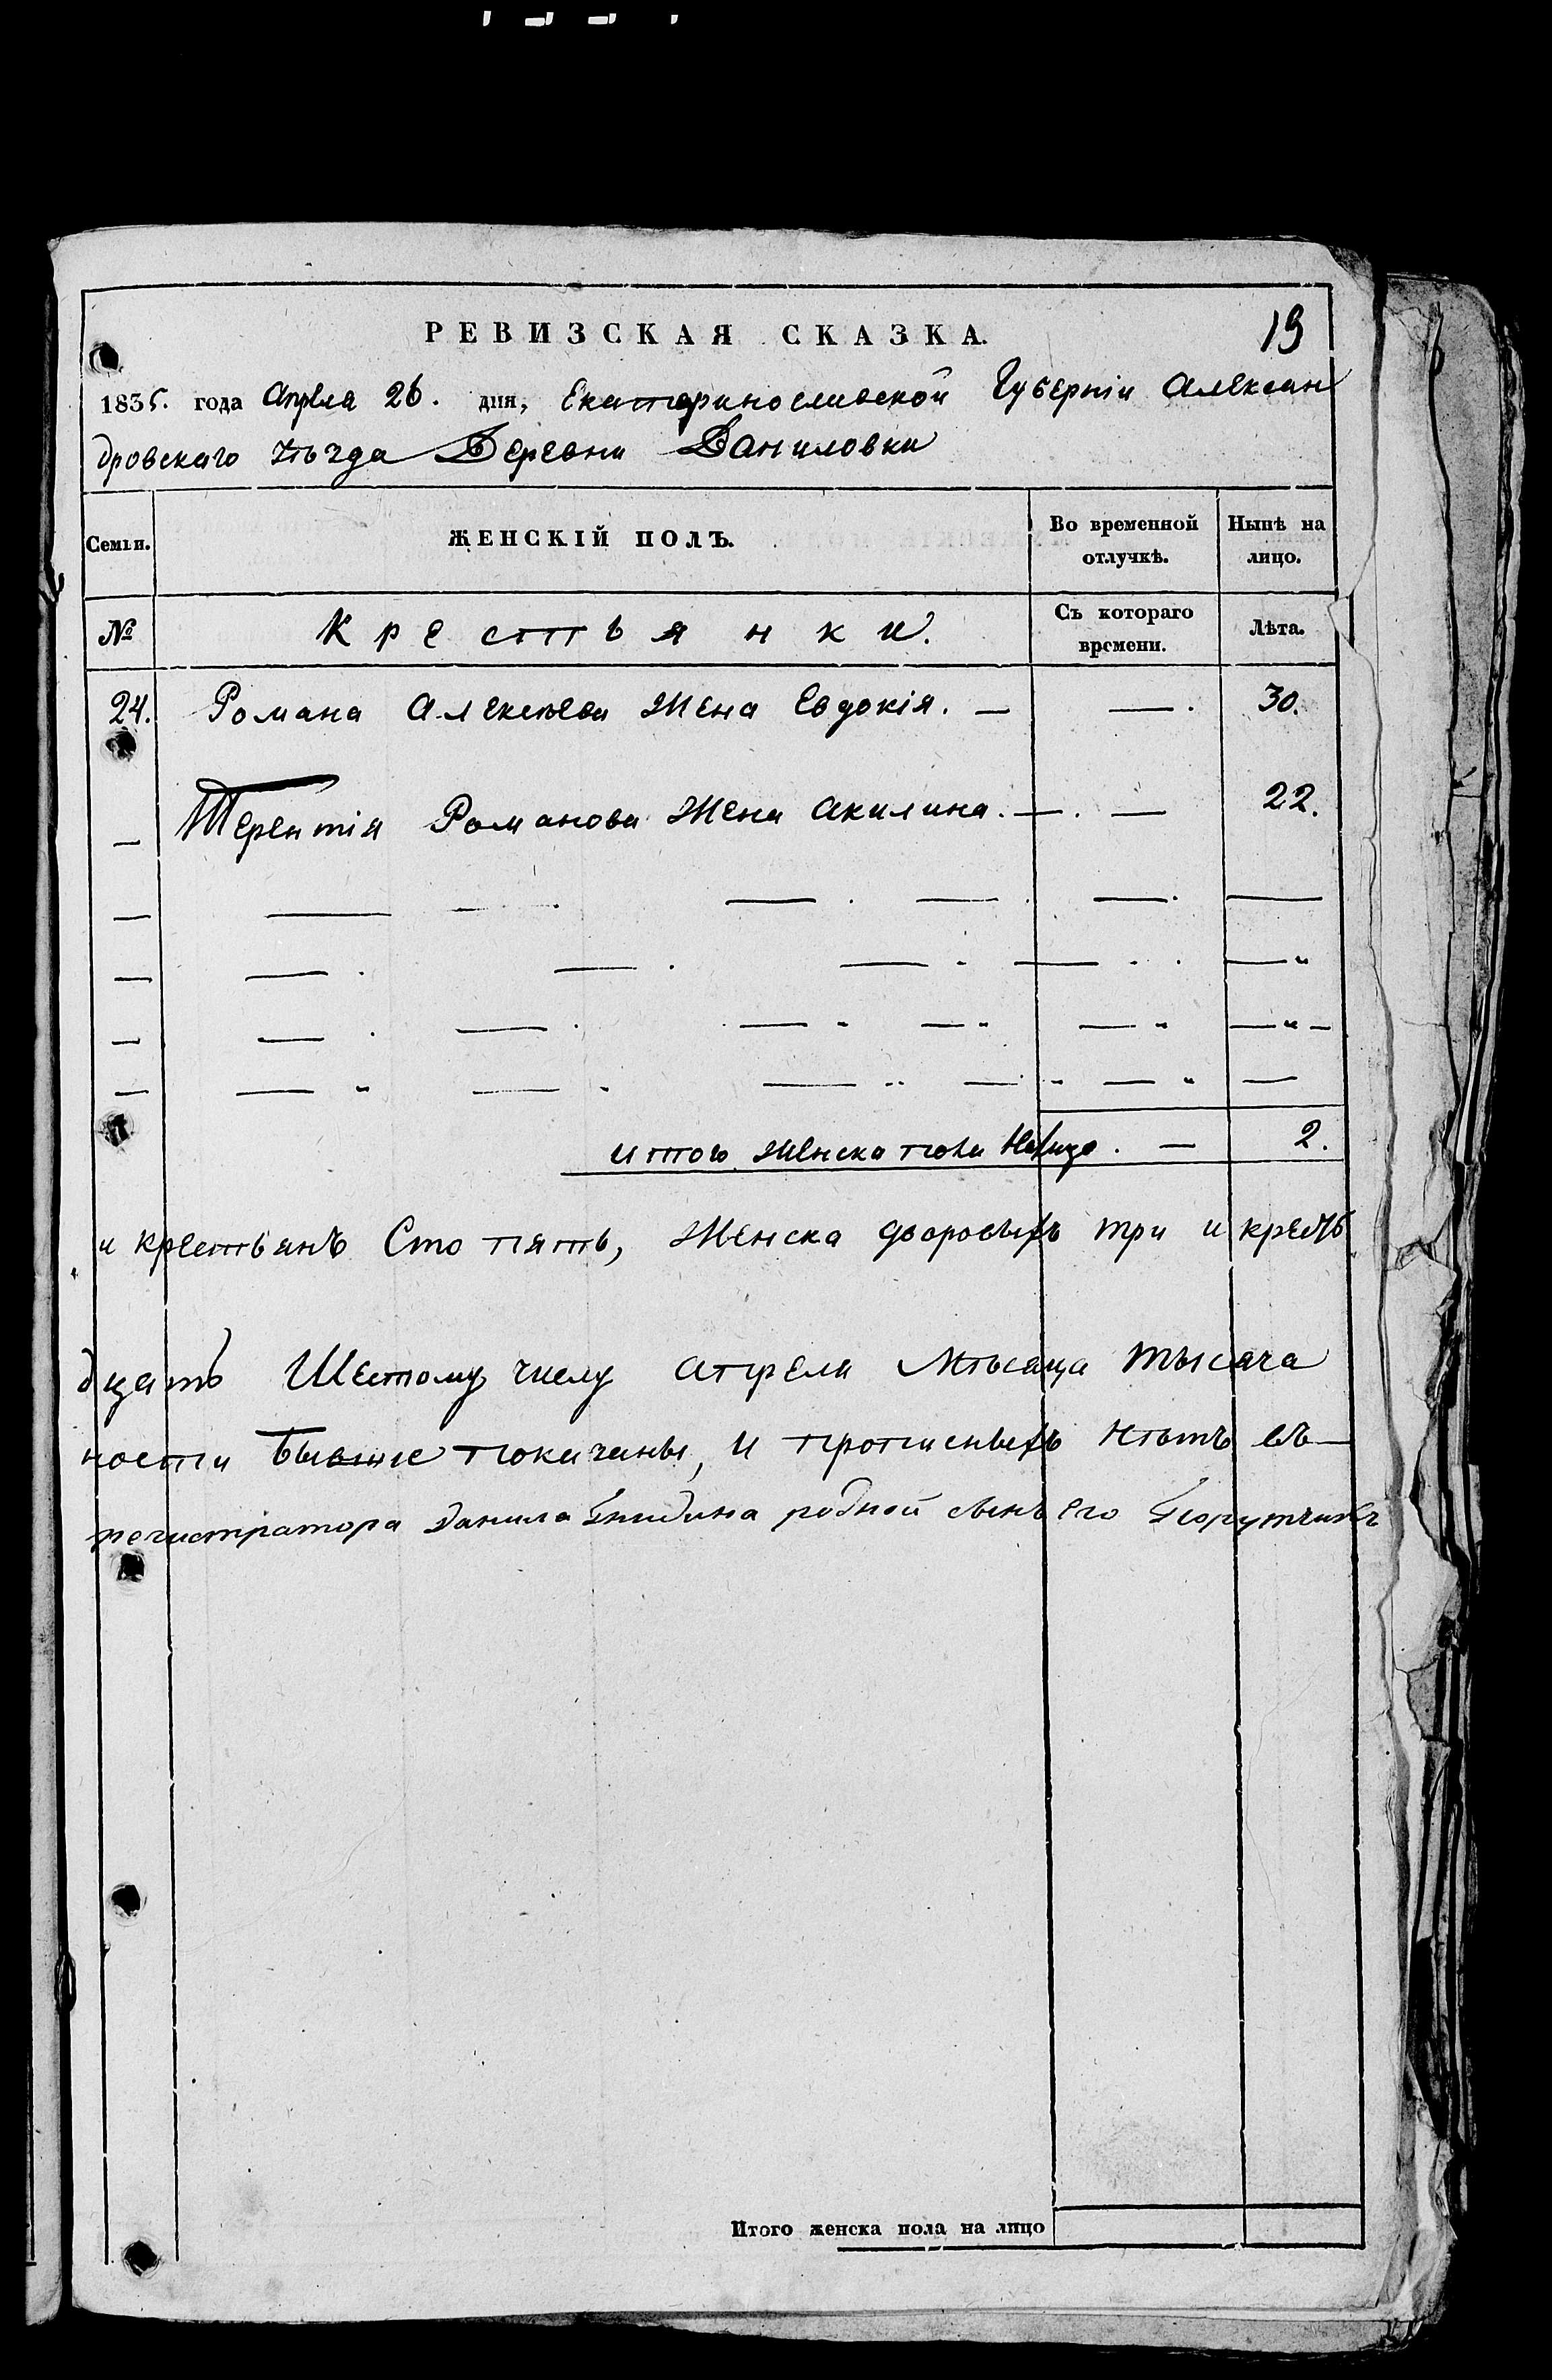 РЕВИЗСКАЯ СКАЗКА.
19
1835. года Апреля 26. дня, Екатеринославской Губерніи Алексан
дровскаго уѣзда Деревни Даниловки
Семьи. ЖЕНСКІЙ ПОЛЪ. Во временной отлучкѣ. Нынѣ на лицо.
№ Крестьянки. Съ котораго времени. Лѣта.
24. Романа Алексѣева Жена Евдокія. — — . 30.
— Терентія Романова Жена Акилина. — . — 22.
Итого женска пола налицо . — 2.
и крестьянъ Сто пять, Женска дворовыхъ три и кресть
дцать Шестому числу апреля Мѣсяца тысяча
ности Бывше показаны, и прописныхъ Нѣтъ въ —
регистратора Данила родной сынъ его Порутчикъ
Итого женска пола на лицо